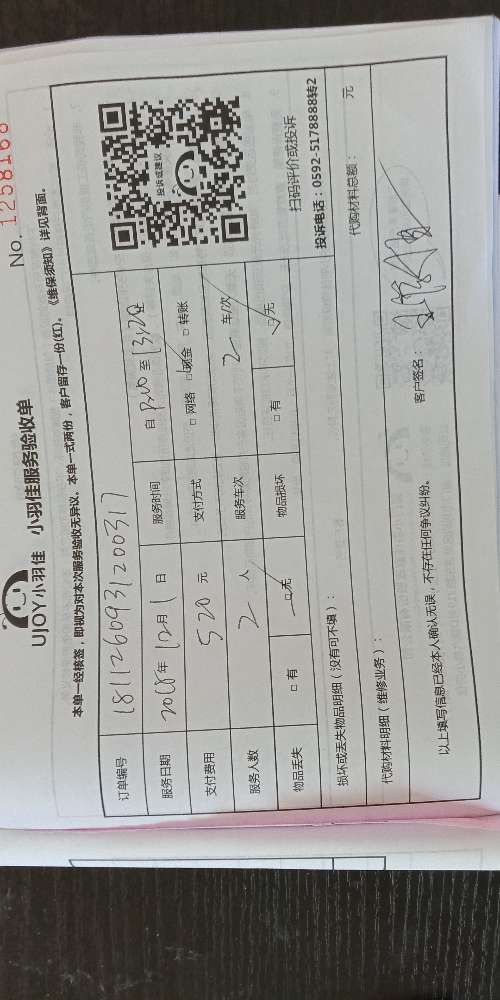 No. 1258168
UJOY小羽佳 小羽佳服务验收单
本单一经核签，即视为对本次服务验收无异议。本单一式两份，客户留存一份(红)。《维保须知》详见背面。
订单编号 1811260931200317
服务日期 2018年 12月 1 日 服务时间 自 至 13:20
支付费用 520 元 支付方式 □ 网络 □ 现金 □ 转账
服务人数 2 人 服务车次 2 车/次
物品丢失 □ 有 □ 无 物品损坏 □ 有 □ 无
投诉或建议
扫码评价或投诉
投诉电话：0592-5178888转2
损坏或丢失物品明细（没有可不填）：
代购材料明细（维修业务）： 代购材料总额： 元
以上填写信息已经本人确认无误，不存在任何争议纠纷。 客户签名：